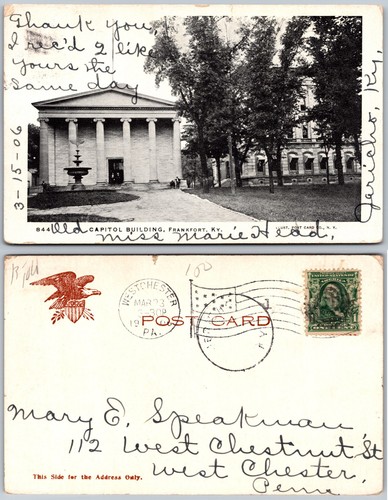 Thank you,
I rec'd 2 like
yours the
same day
3-15-06
Jericho, Ky.
844 Old CAPITOL BUILDING, FRANKFORT, KY.
ILLUST. POST CARD CO., N. Y.
Miss Marie Head,
100
WEST CHESTER
MAR 23
PA.
1
POST CARD
REC'D
Mary E. Speakman
112 West Chestnut St
West Chester,
Penn
This Side for the Address Only.